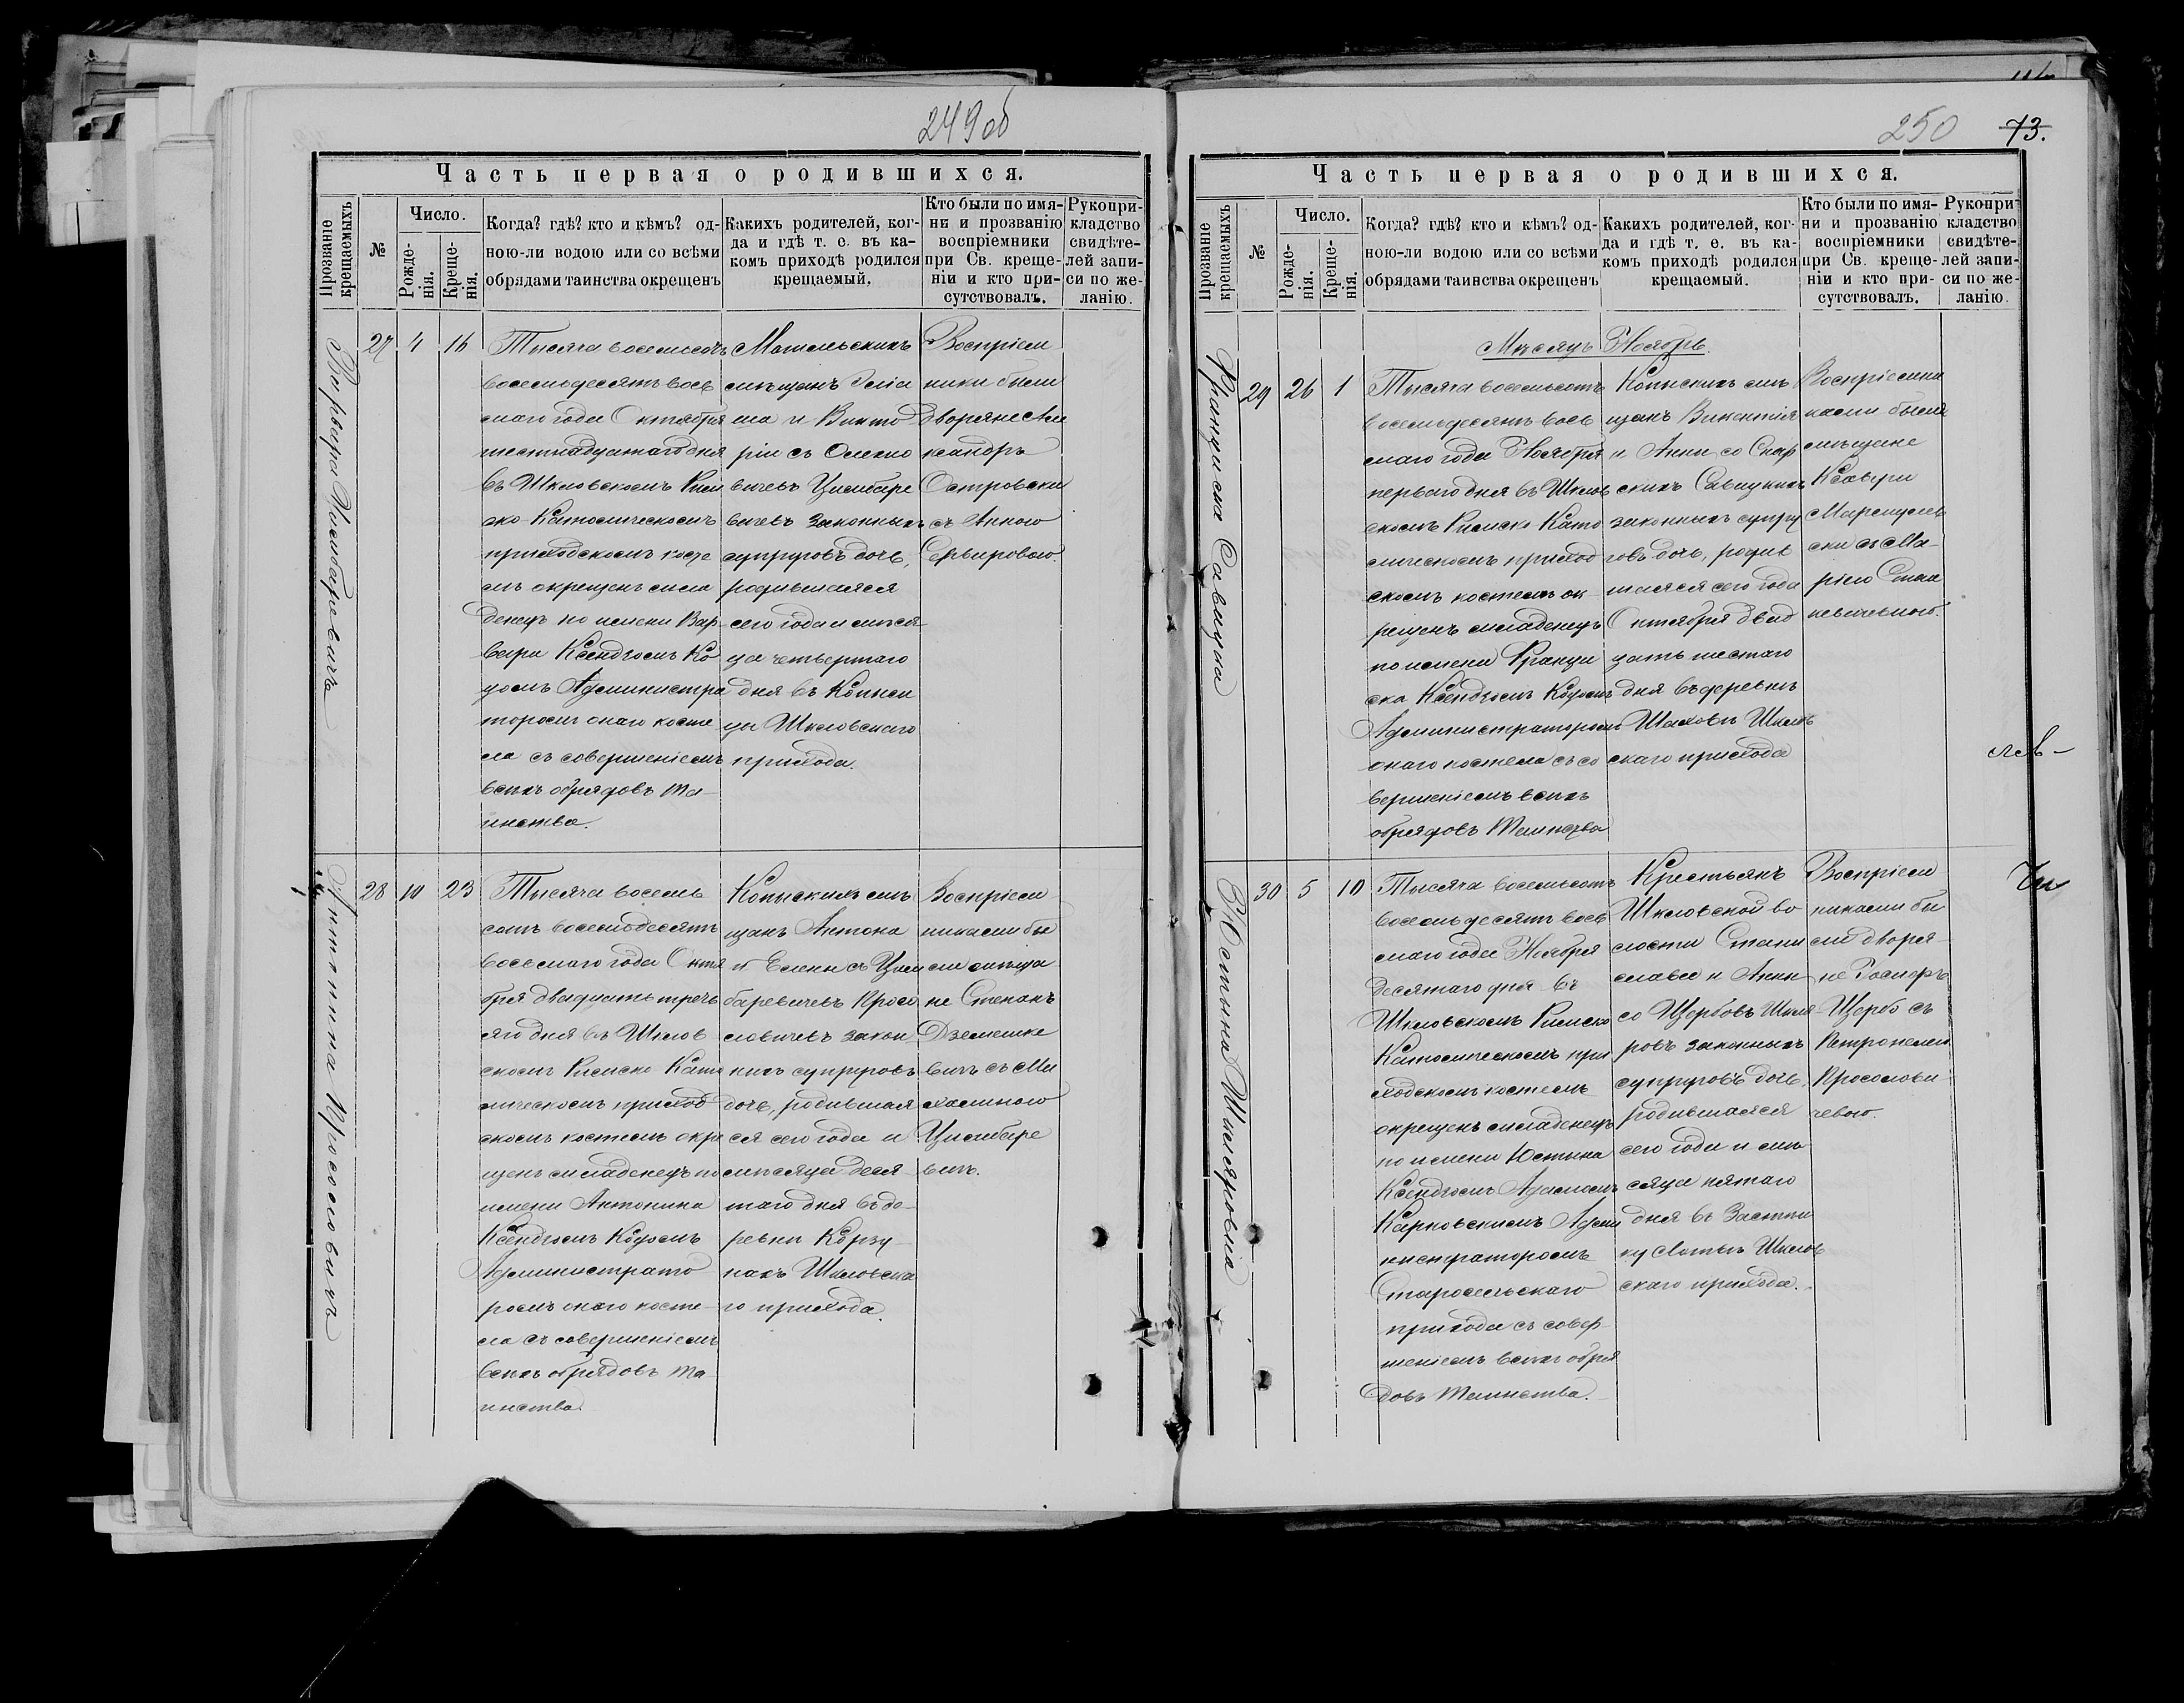 249об
Часть первая о родившихся.
Прозваніе крещаемыхъ
№
Число.
Рожде-
нія.
Креще-
нія.
Когда? гдѣ? кто и кѣмъ? од-
ною-ли водою или со всѣми
обрядами таинства окрещенъ
Какихъ родителей, ког-
да и гдѣ т. е. въ ка-
комъ приходѣ родился
крещаемый.
Кто были по имя-
ни и прозванію
воспріемники
при Св. креще-
ніи и кто при-
сутствовалъ.
Рукопри-
кладство
свидѣте-
лей запи-
си по же-
ланію.
Варвара Цимбаревичъ
27 4 16
Тысяча восемьсотъ
восемьдесятъ вось
маго года Октября
шестнадцатаго дня
въ Шкловскомъ Рим
ско-Католическомъ
приходскомъ косте
лѣ окрещенъ мла
денецъ по имени Вар-
вара Ксендзомъ Ко
цомъ Администра
торомъ онаго косте
ла съ совершеніемъ
всѣхъ обрядовъ та-
инства.
Могилевскихъ
мѣщанъ
и Викто
ріи съ
вичевъ Цимбаре
вичевъ законныхъ
супруговъ дочь,
родившаяся
сего года и мѣся-
ца четвертаго
дня въ Копыси
ца Шкловскаго
прихода.
Воспріем
ники были
дворяне Але
ксандръ
Островски
съ Анною
Антонина Прософовичъ
28 10 23
Тысяча восемь
сотъ восемьдесятъ
восьмаго года Октя
бря двадцать треть
яго дня въ Шклов
скомъ Римско Като
лическомъ приход
скомъ костелѣ окре
щенъ младенецъ по
имени Антонина
Ксендзомъ Коцомъ
Администрато
ромъ онаго косте-
ла съ совершеніемъ
всѣхъ обрядовъ та
инства.
Копыскихъ мѣ
щанъ Антона
и Елены съ Цим
баревичевъ Просо
ловичевъ закон
ныхъ супруговъ
дочь, родившая
ся сего года и
мѣсяца деся
таго дня въ де-
ревни Корзу
нахъ Шкловска
го прихода.
Воспріем
никами бы
ли мѣща
не Степанъ
Дземешке
вичъ съ Ми
халиною
Цимбаре
вичъ.
250 73.
Часть первая о родившихся.
Прозваніе крещаемыхъ
№
Число.
Рожде-
нія.
Креще-
нія.
Когда? гдѣ? кто и кѣмъ? од-
ною-ли водою или со всѣми
обрядами таинства окрещенъ
Какихъ родителей, ког-
да и гдѣ т. е. въ ка-
комъ приходѣ родился
крещаемый.
Кто были по имя-
ни и прозванію
воспріемники
при Св. креще-
ніи и кто при-
сутствовалъ.
Рукопри-
кладство
свидѣте-
лей запи-
си по же-
ланію.
Мѣсяцъ Ноябрь.
Франциска Савицка
29 26 1
Тысяча восемьсотъ
восемьдесятъ вось
маго года Ноября
перваго дня въ Шклов
скомъ Римско Като
лическомъ приход
скомъ костелѣ ок
рещенъ младенецъ
по имени Франци
ска Ксендзомъ Коцомъ
Администраторомъ
онаго костела съ со
вершеніемъ всѣхъ
обрядовъ Таинства
Копыскихъ мѣ
щанъ Викентія
и Анны со Скар
скихъ Савицкихъ
законныхъ супру
говъ дочь, родив
шаяся сего года
Октября двад
цать шестаго
дня въ деревнѣ
Шаховѣ Шклов
скаго прихода
Воспріемни
ками были
мѣщане
Ксавери
ски съ Ма-
ріею
Юстина Шклярровна
30 5 10
Тысяча восемьсотъ
восемьдесятъ вось
маго года Ноября
десятаго дня въ
Шкловскомъ Римско
Католическомъ при
ходскомъ костелѣ
окрещенъ младенецъ
по имени Юстына
Ксендзомъ Адамомъ
Карповскимъ Адми
нистраторомъ
Старосельскаго
прихода съ совер-
шеніемъ всѣхъ обря
довъ Таинства.
Крестьянъ
Шкловской во
лости Стани
слава и Анны
со Щербовъ Шкля
ровъ законныхъ
супруговъ дочь,
родившаяся
сего года и мѣ
сяца пятаго
дня въ Застѣн
ку Шклов
скаго прихода.
Воспріем
никами бы
ли дворя-
не
Щербо съ
Петронелею
Просолови-
чевою.